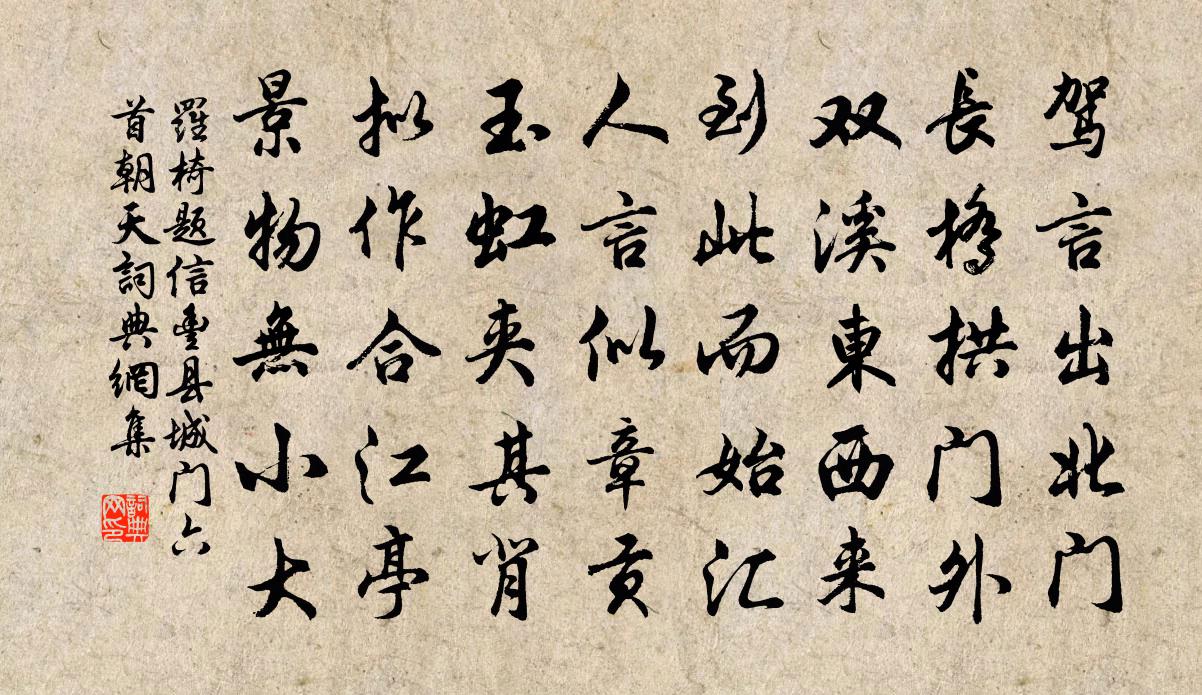 駕言出北门
長橋拱门外
双溪東西来
到此而始汇
人言似章贡
玉虹夹其背
拟作合江亭
景物無小大
羅椅题信豊县城门六
首朝天詞典網集
詞典网印